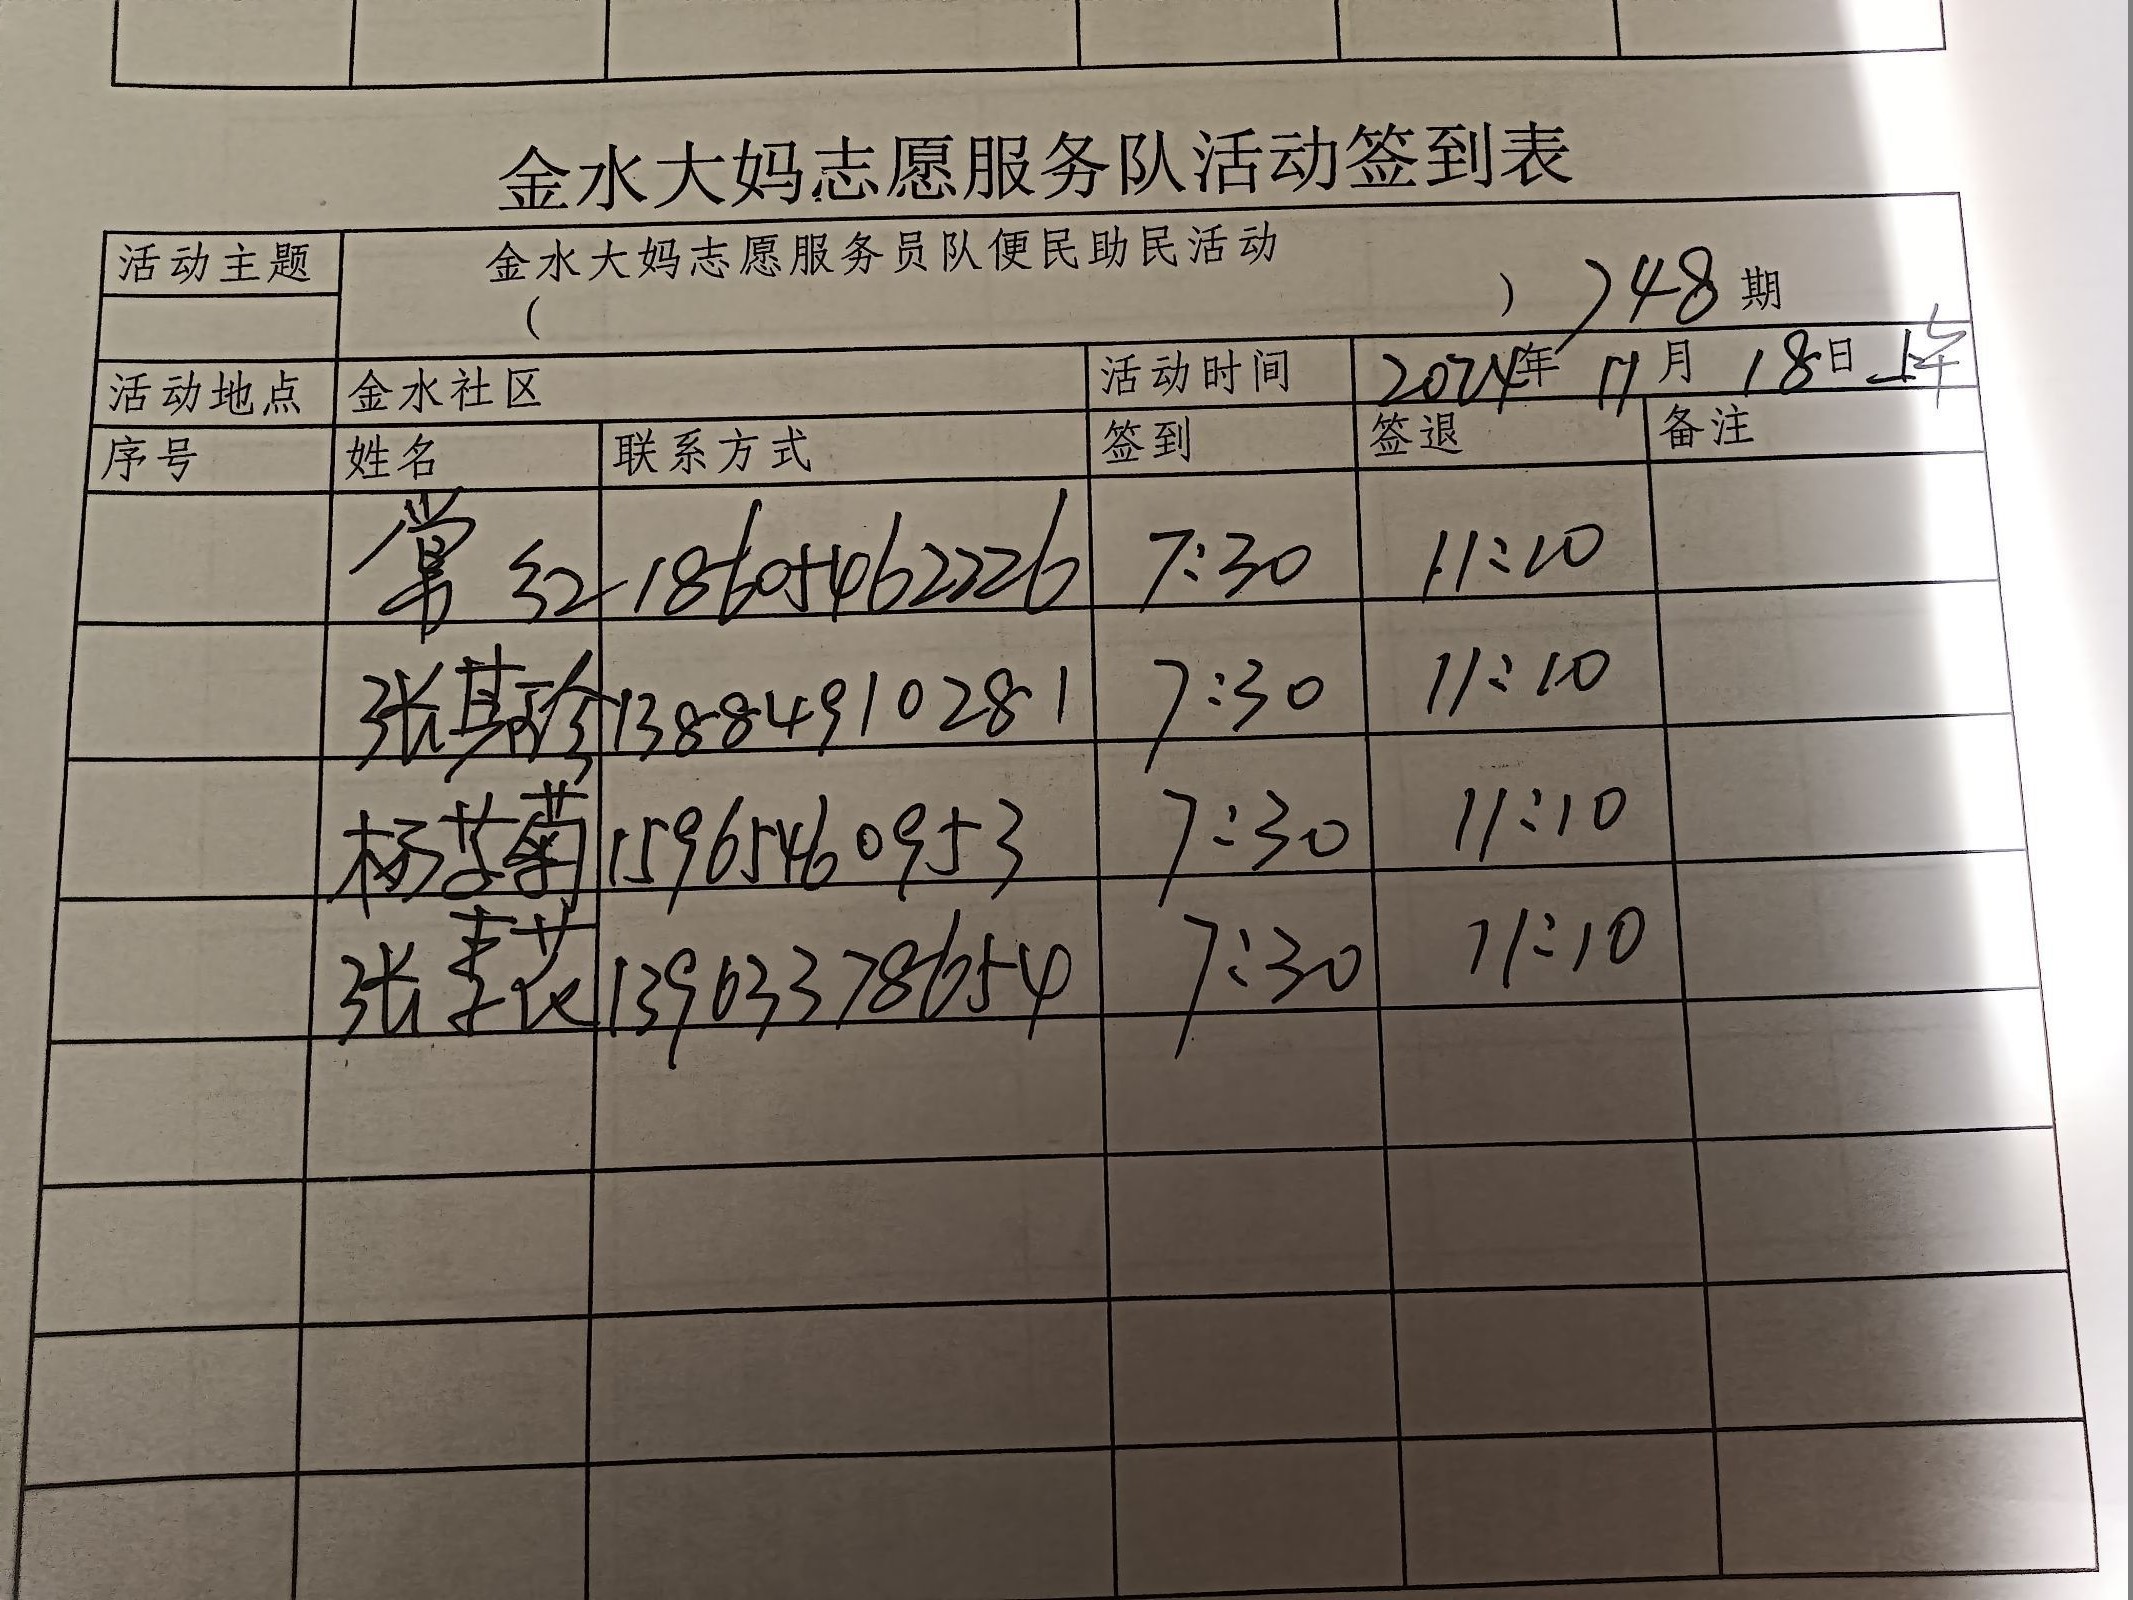 金水大妈志愿服务队活动签到表
活动主题 金水大妈志愿服务员队便民助民活动
( ) 748期
活动地点 金水社区 活动时间 2024年 11月 18日 上午
序号 姓名 联系方式 签到 签退 备注
常红 18605462226 7:30 11:10
张其珍 13884910281 7:30 11:10
杨艾菊 15965460953 7:30 11:10
张花 13963378654 7:30 11:10